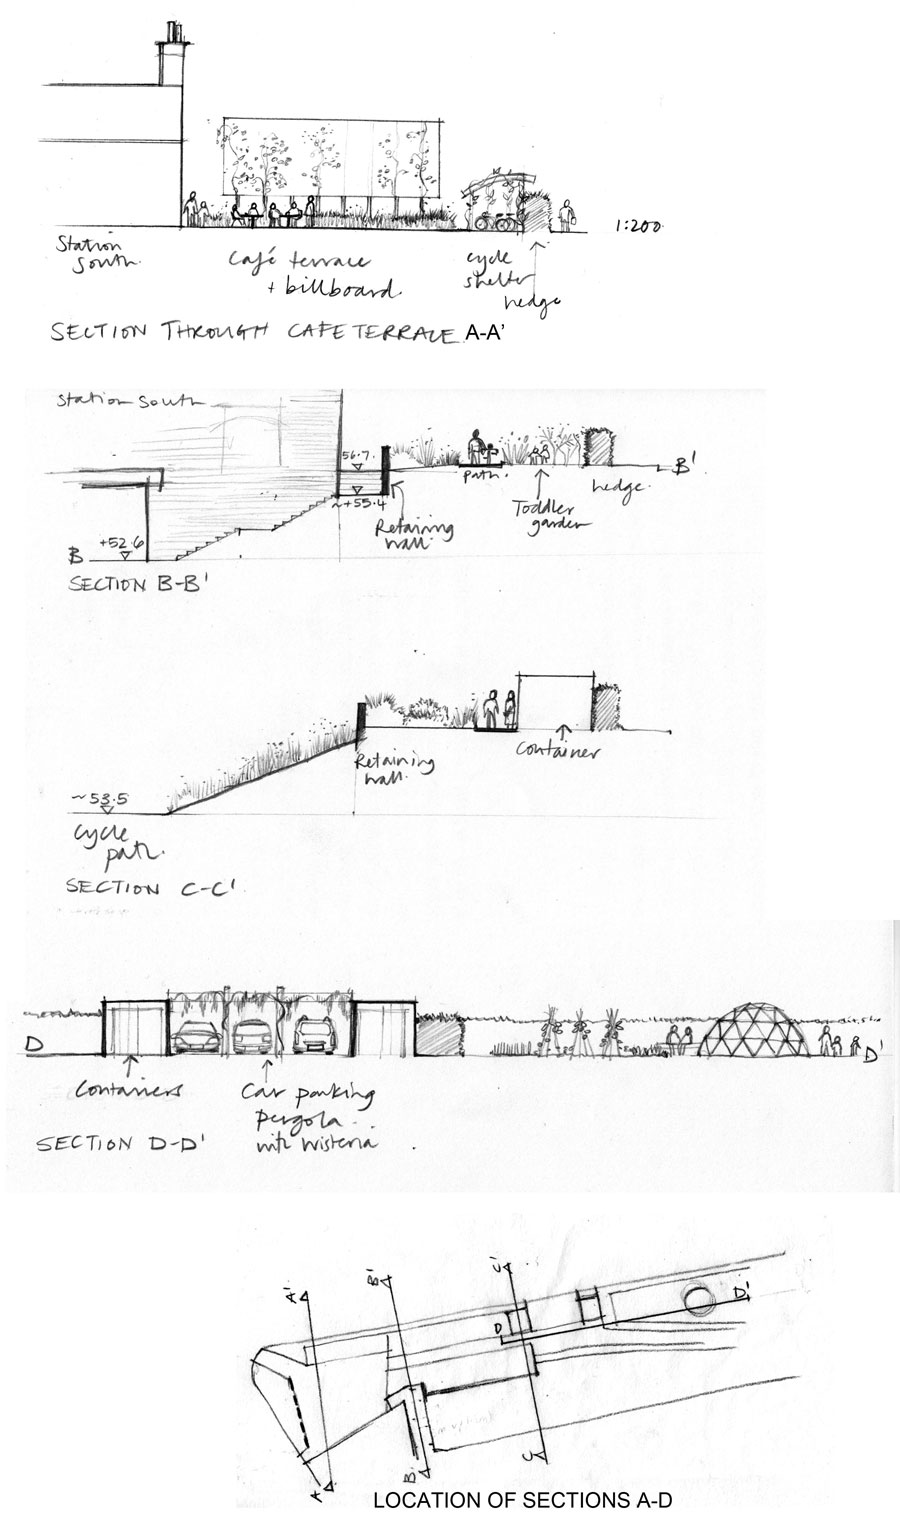 1:200
Station
South.
Café terrace
+ billboard.
cycle
shelter
hedge
SECTION THROUGH CAFE TERRACE A-A'
Station South
56.7
~+55.4
+52.6
B
B'
Retaining
wall.
path.
Toddler
garden
hedge.
SECTION B-B'
Retaining
wall.
Container
~53.5
Cycle
path.
SECTION C-C'
D
D'
Containers
Car parking
pergola
with wisteria
SECTION D-D'
A'
B'
C'
D
D'
A
B
C
LOCATION OF SECTIONS A-D